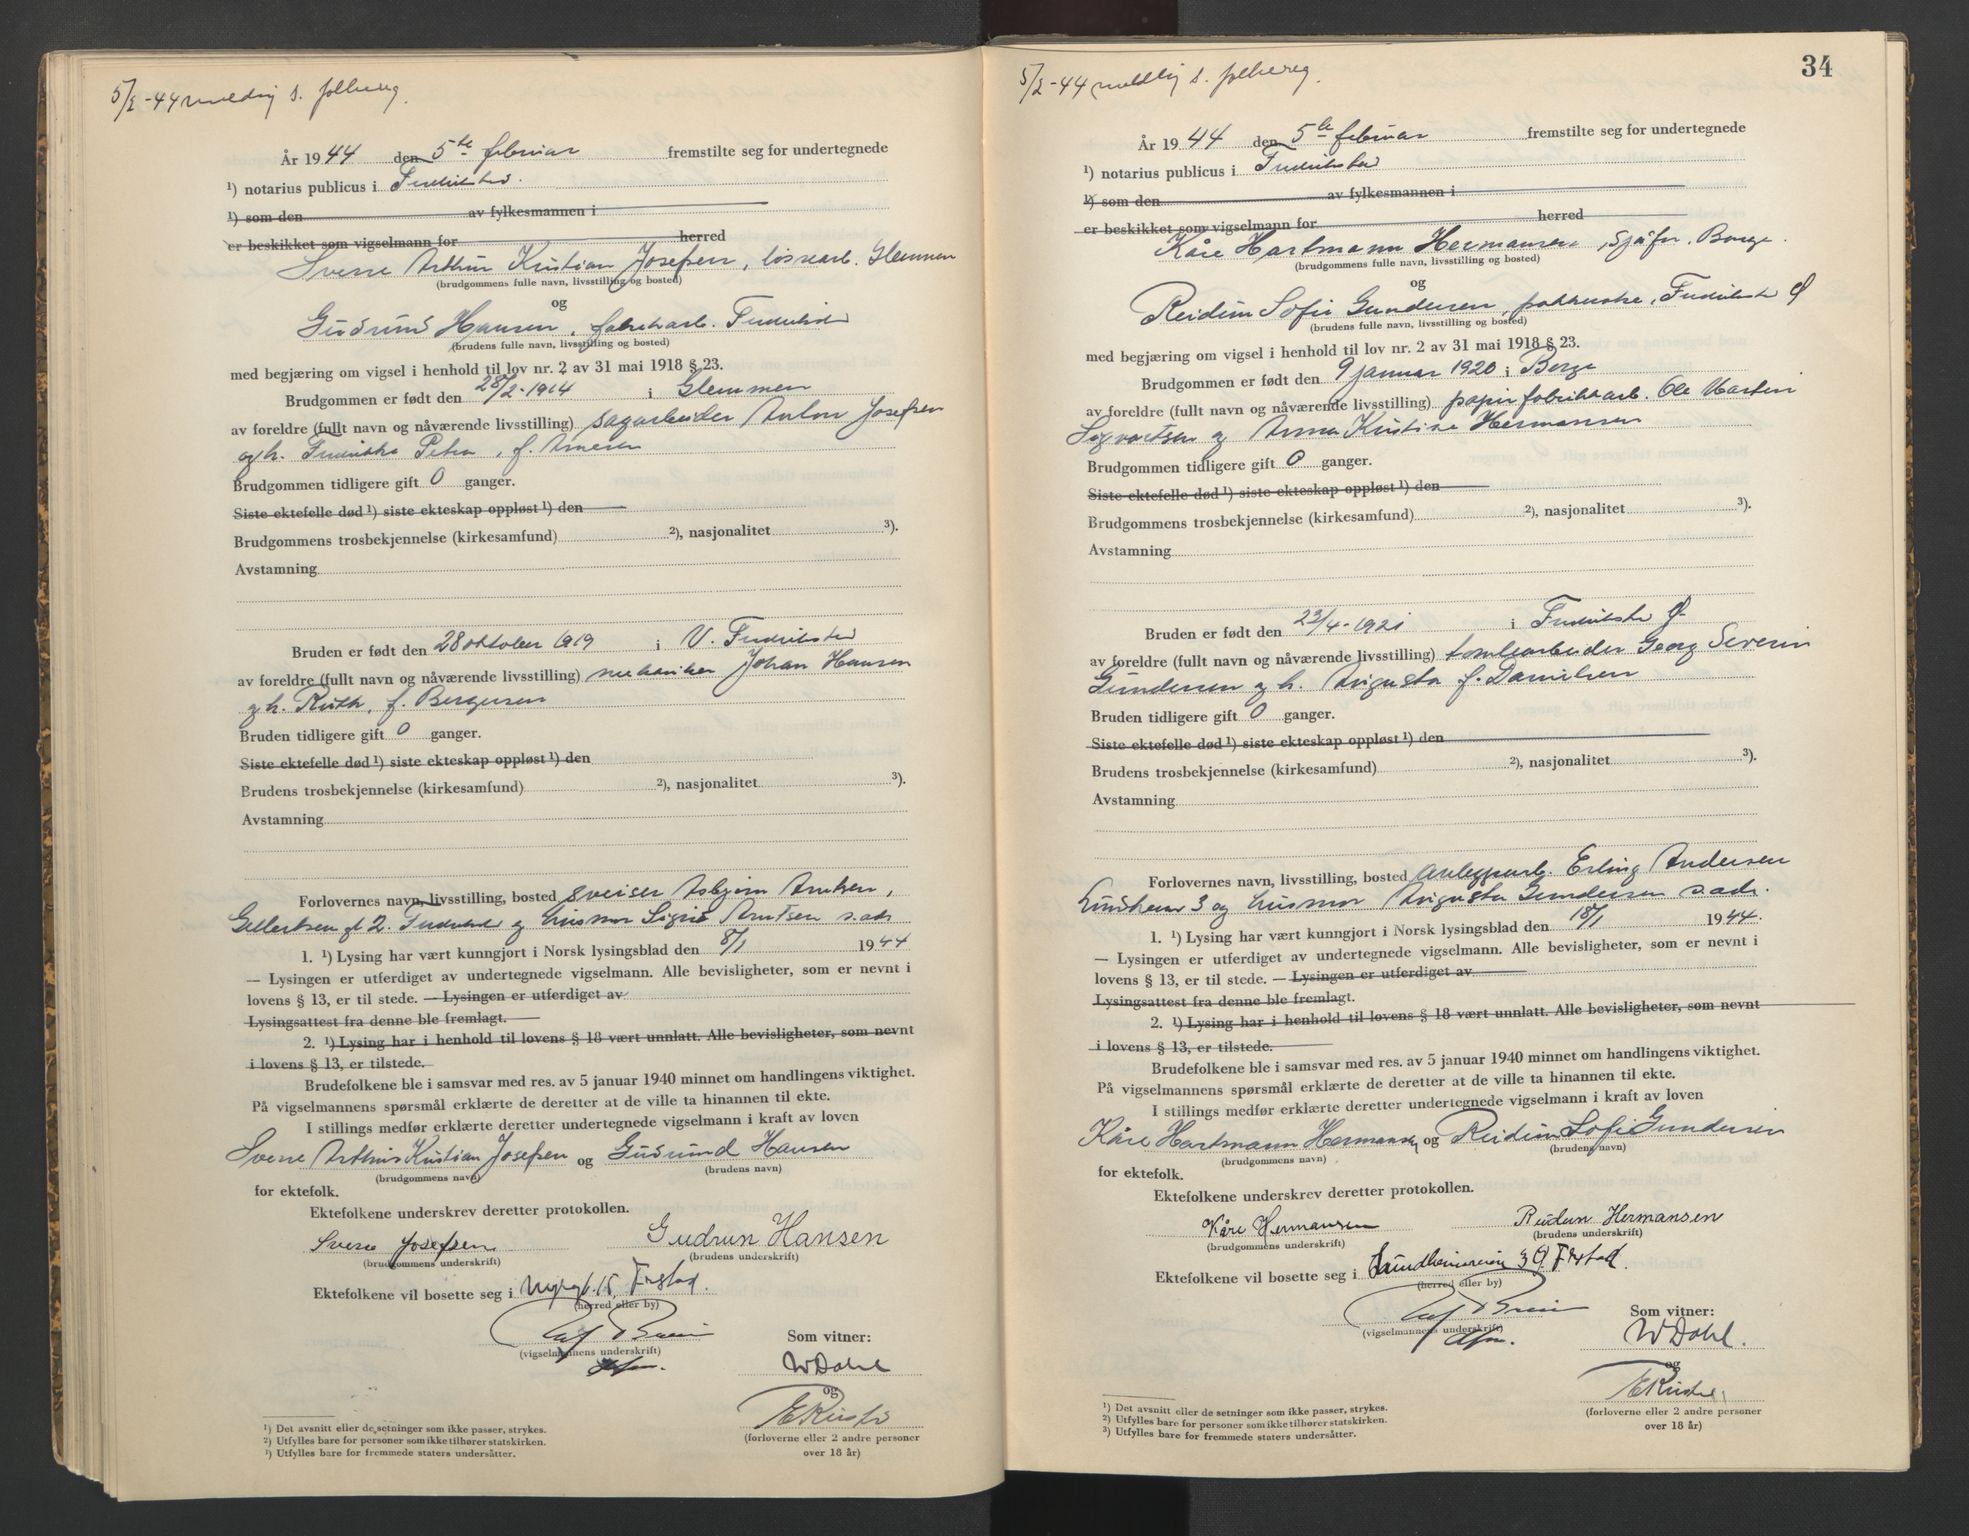 5/2-44 melding s. folkereg.
År 1944 den 5te februar fremstilte seg for undertegnede
¹) notarius publicus i Fredrikstad.
¹) som den av fylkesmannen i
er beskikket som vigselmann for herred
Sverre Arthur Kristian Josefsen, lossearb. Glemmen
(brudgommens fulle navn, livsstilling og bosted)
og
Gudrund Hansen, fabrikarb. Fredrikstad
(brudens fulle navn, livsstilling og bosted)
med begjæring om vigsel i henhold til lov nr. 2 av 31 mai 1918 § 23.
Brudgommen er født den 28/2-1914 i Glemmen
av foreldre (fullt navn og nåværende livsstilling) sagarbeider Anton Josefsen
og h. Fredrikke Petra, f. Arnesen
Brudgommen tidligere gift 0 ganger.
Siste ektefelle død ¹) siste ekteskap oppløst ¹) den
Brudgommens trosbekjennelse (kirkesamfund) ²), nasjonalitet ³).
Avstamning
Bruden er født den 28 oktober 1919 i V. Fredrikstad
av foreldre (fullt navn og nåværende livsstilling) mekaniker Johan Hansen
og h. Ruth, f. Bergersen
Bruden tidligere gift 0 ganger.
Siste ektefelle død ¹) siste ekteskap oppløst ¹) den
Brudens trosbekjennelse (kirkesamfund) ²), nasjonalitet ³).
Avstamning
Forlovernes navn, livsstilling, bosted sveiser Asbjørn Arntsen,
Gellertsens gt 2. Fredrikstad og husmor Sigrid Arntsen s. adr.
1. ¹) Lysing har vært kunngjort i Norsk lysingsblad den 8/1 1944
— Lysingen er utferdiget av undertegnede vigselmann. Alle bevisligheter, som er nevnt i
lovens § 13, er til stede. — Lysingen er utferdiget av
Lysingsattest fra denne ble fremlagt.
2. ¹) Lysing har i henhold til lovens § 18 vært unnlatt. Alle bevisligheter, som nevnt
i lovens § 13, er tilstede.
Brudefolkene ble i samsvar med res. av 5 januar 1940 minnet om handlingens viktighet.
På vigselmannens spørsmål erklærte de deretter at de ville ta hinannen til ekte.
I stillings medfør erklærte deretter undertegnede vigselmann i kraft av loven
Sverre Arthur Kristian Josefsen og Gudrund Hansen
(brudgommens navn) (brudens navn)
for ektefolk.
Ektefolkene underskrev deretter protokollen.
Sverre Josefsen Gudrun Hansen
(brudgommens underskrift) (brudens underskrift)
Ektefolkene vil bosette seg i Nygt. 15, Fr.stad.
(herred eller by)
Som vitner:
(vigselmannens underskrift)
W Dahl
og
(forloverne eller 2 andre personer
over 18 år)
¹) Det avsnitt eller de setninger som ikke passer, strykes.
²) Utfylles bare for personer som ikke tilhører statskirken.
¹) Utfylles bare for fremmede staters undersåtter.
34
5/2-44 melding s. folkereg.
År 1944 den 5te februar fremstilte seg for undertegnede
¹) notarius publicus i Fredrikstad
¹) som den av fylkesmannen i
er beskikket som vigselmann for herred
Kåre Hartmann Hermansen, sjåfør, Borge.
(brudgommens fulle navn, livsstilling og bosted)
og
Reidun Sofie Gundersen, pakkerske, Fredrikstad Ø
(brudens fulle navn, livsstilling og bosted)
med begjæring om vigsel i henhold til lov nr. 2 av 31 mai 1918 § 23.
Brudgommen er født den 9 januar 1920 i Borge
av foreldre (fullt navn og nåværende livsstilling) papirfabrikkarb. Ole Martin
Sigvartsen og Anna Kristine Hermansen
Brudgommen tidligere gift 0 ganger.
Siste ektefelle død ¹) siste ekteskap oppløst ¹) den
Brudgommens trosbekjennelse (kirkesamfund) ²), nasjonalitet ³).
Avstamning
Bruden er født den 23/4-1921 i Fredrikstad Ø.
av foreldre (fullt navn og nåværende livsstilling) tomtearbeider Georg Severin
Gundersen og h. Augusta f. Danielsen
Bruden tidligere gift 0 ganger.
Siste ektefelle død ¹) siste ekteskap oppløst ¹) den
Brudens trosbekjennelse (kirkesamfund) ²), nasjonalitet ³).
Avstamning
Forlovernes navn, livsstilling, bosted anleggsarb. Erling Andersen
Lundheim 3 og husmor Augusta Gundersen s. adr.
1. ¹) Lysing har vært kunngjort i Norsk lysingsblad den 18/1 1944.
— Lysingen er utferdiget av undertegnede vigselmann. Alle bevisligheter, som er nevnt i
lovens § 13, er til stede. — Lysingen er utferdiget av
Lysingsattest fra denne ble fremlagt.
2. ¹) Lysing har i henhold til lovens § 18 vært unnlatt. Alle bevisligheter, som nevnt
i lovens § 13, er tilstede.
Brudefolkene ble i samsvar med res. av 5 januar 1940 minnet om handlingens viktighet.
På vigselmannens spørsmål erklærte de deretter at de ville ta hinannen til ekte.
I stillings medfør erklærte deretter undertegnede vigselmann i kraft av loven
Kåre Hartmann Hermansen og Reidun Sofie Gundersen
(brudgommens navn) (brudens navn)
for ektefolk.
Ektefolkene underskrev deretter protokollen.
Kåre Hermansen Reidun Hermansen
(brudgommens underskrift) (brudens underskrift)
Ektefolkene vil bosette seg i Lundheimveien 3 Ø Fr.stad.
(herred eller by)
Som vitner:
(vigselmannens underskrift)
W Dahl.
og
(forloverne eller 2 andre personer
over 18 år)
¹) Det avsnitt eller de setninger som ikke passer, strykes.
²) Utfylles bare for personer som ikke tilhører statskirken.
³) Utfylles bare for fremmede staters undersåtter.